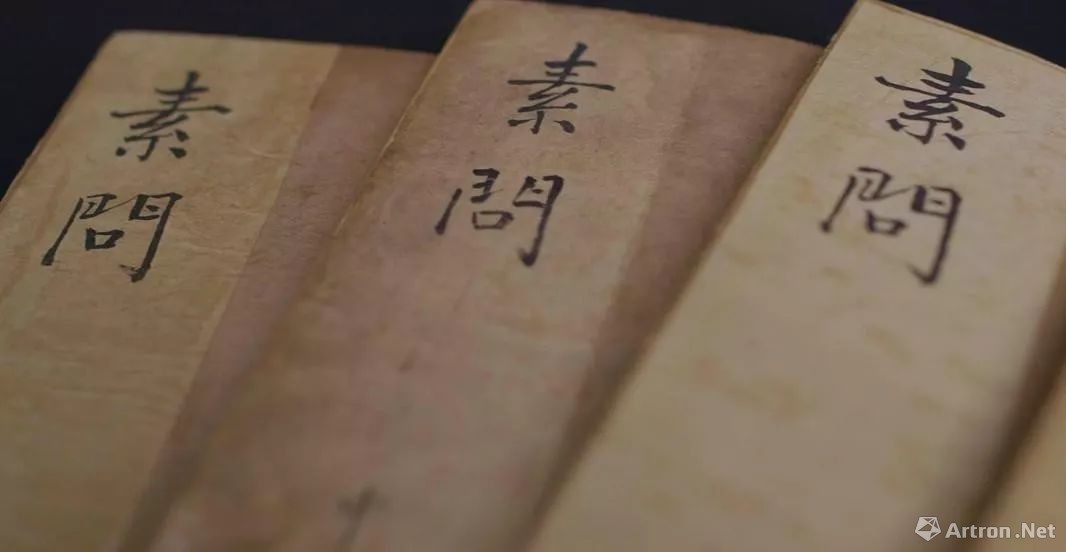 素問
素問
素問
Artron.Net